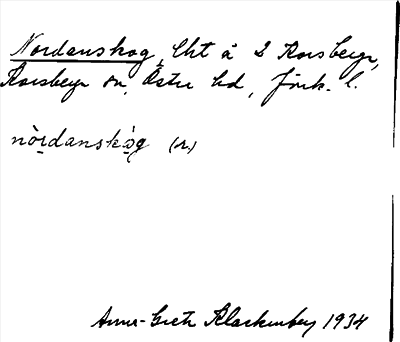 Nordanskog, lht å S Korsberga,
Korsberga sn, Östra hd, Jönk. l.
nòrdanskó̀g (n.)
Anna-Greta Klackenberg 1934